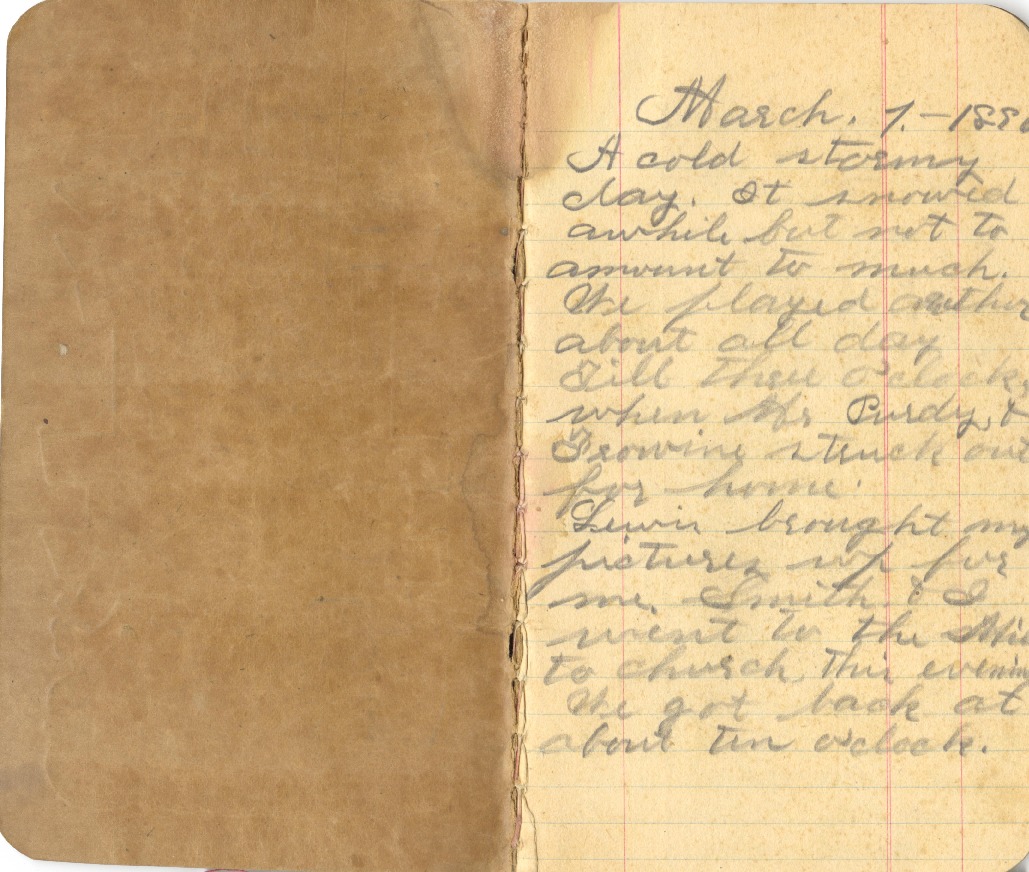 March. 1.-189
A cold stormy
day. It snowed
awhile but not to
amount to much.
We played
about all day
Till three o'clock
when Mr Purdy &
struck out
for home.
Lewis brought my
pictures up for
me. Smith & I
went to the
to church this evening
We got back at
about ten o'clock.